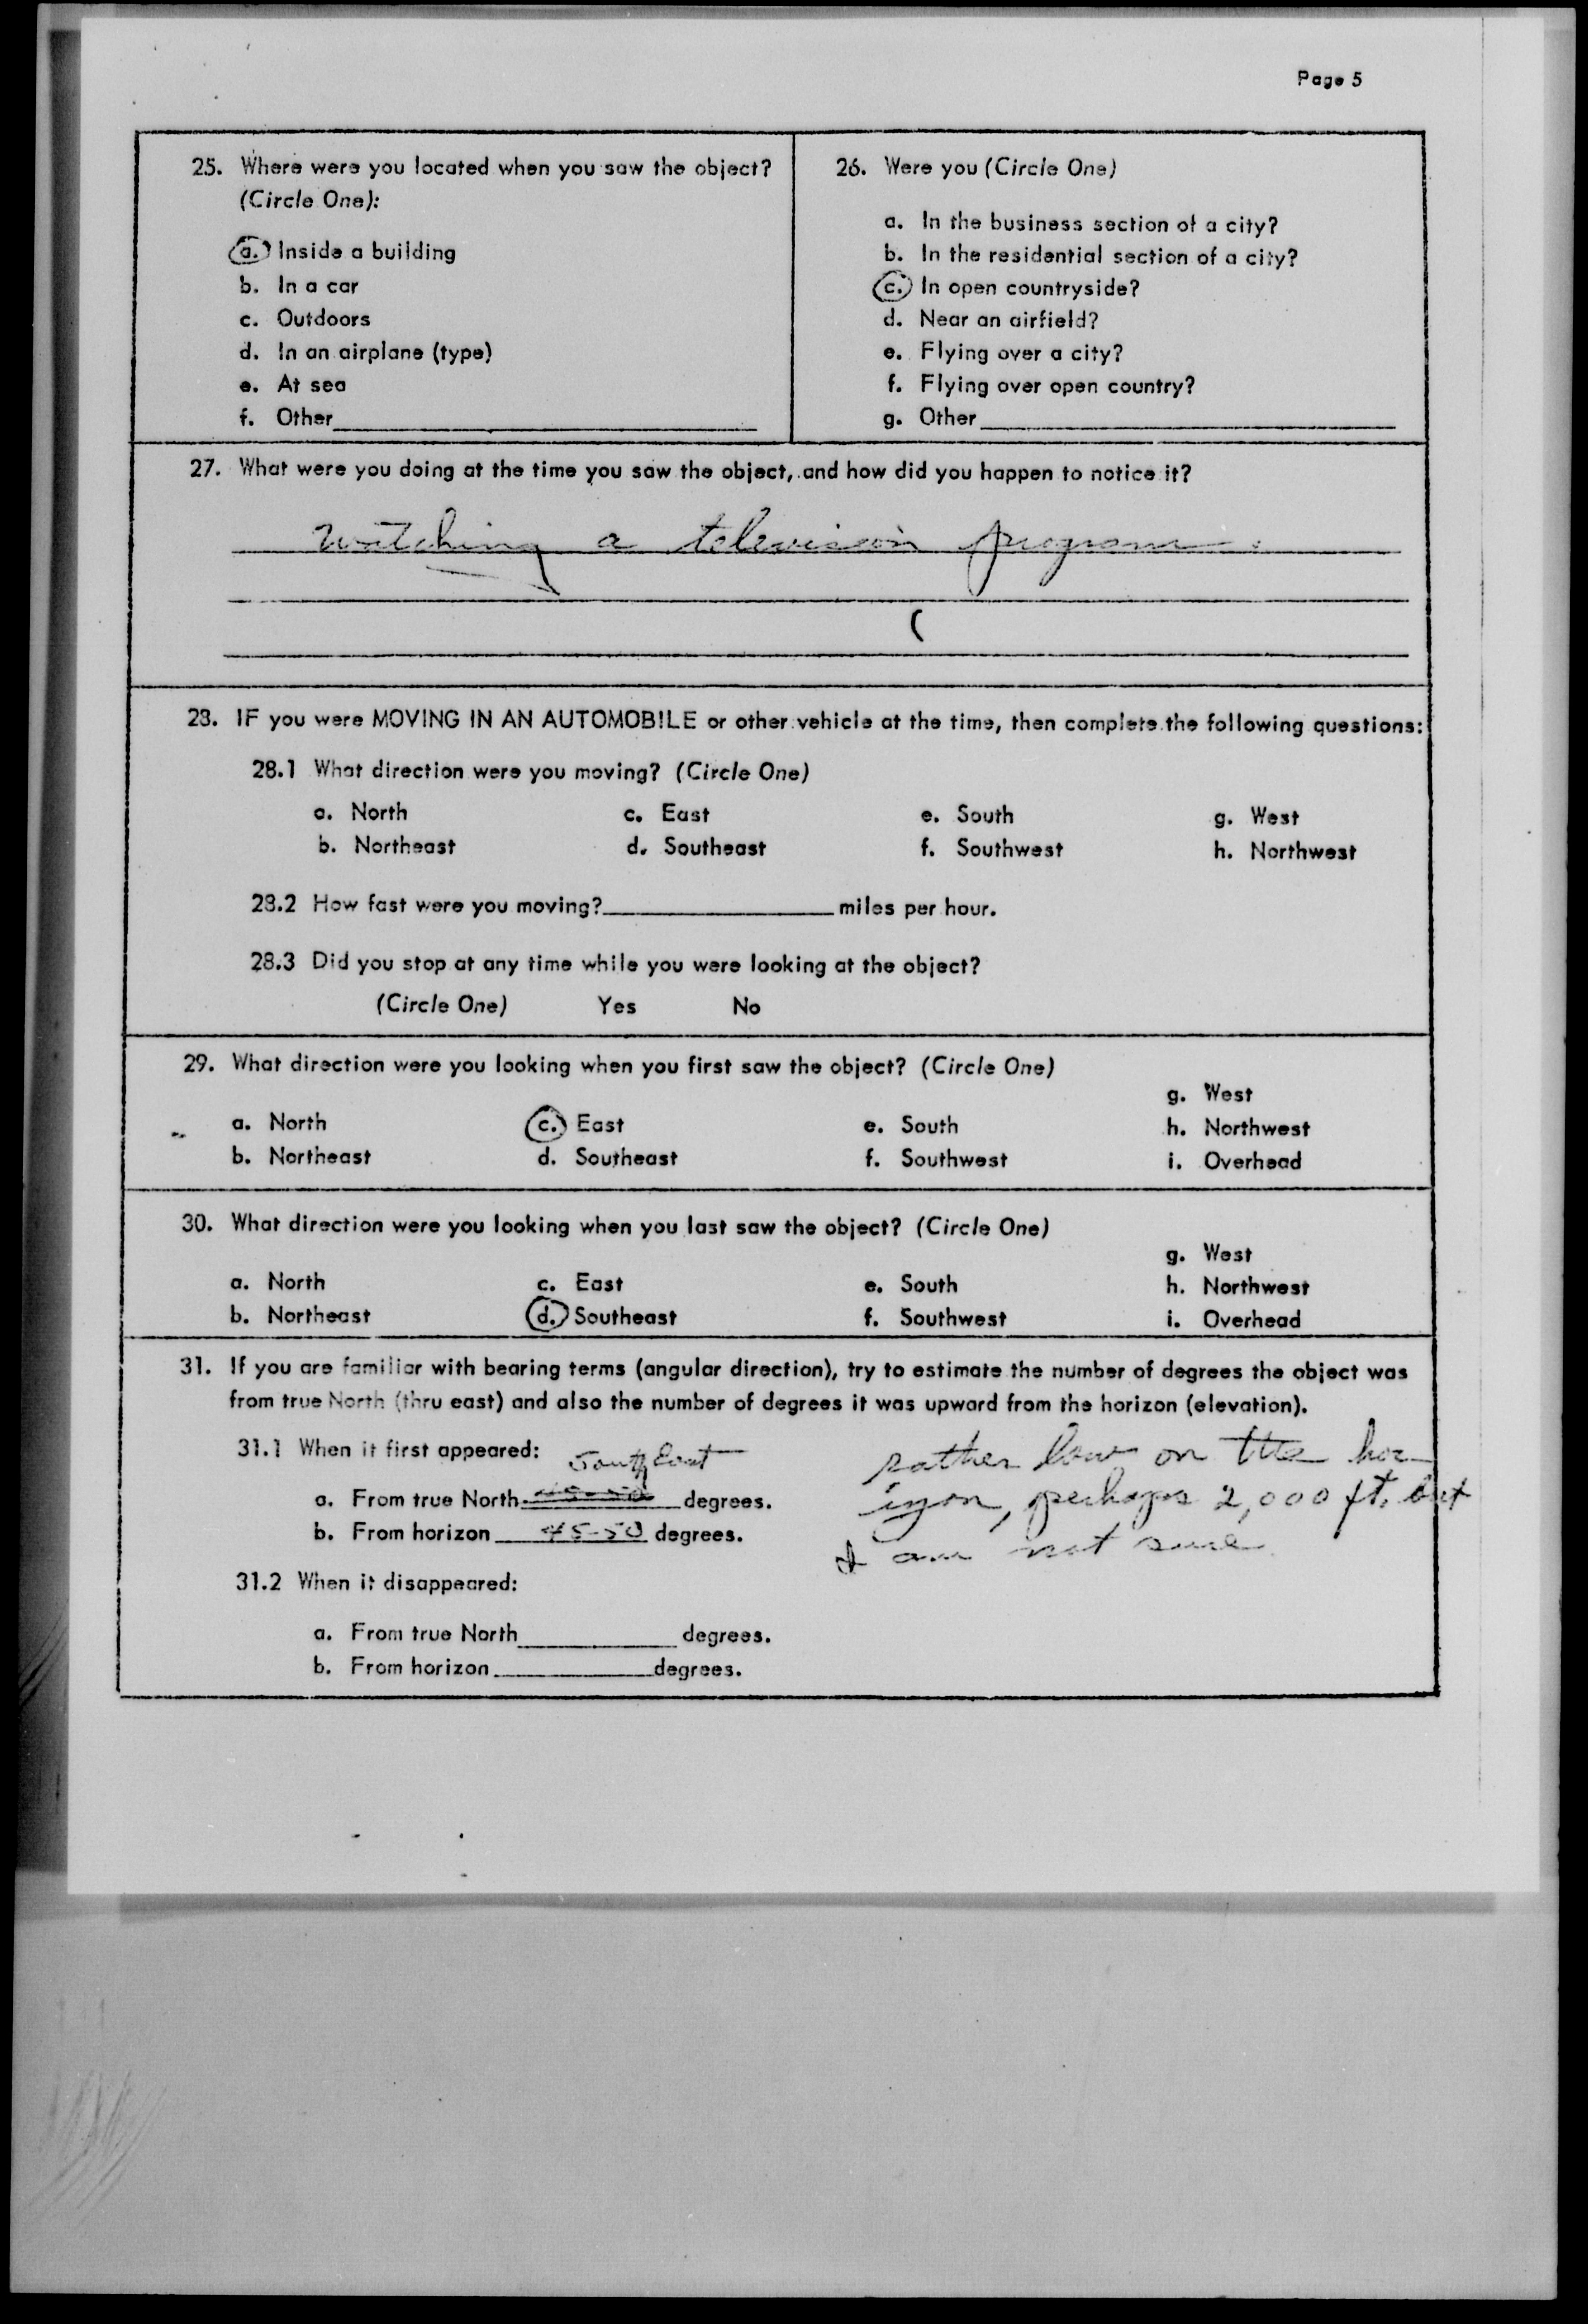 Page 5
25. Where were you located when you saw the object?
(Circle One):
a. Inside a building
b. In a car
c. Outdoors
d. In an airplane (type)
e. At sea
f. Other
26. Were you (Circle One)
a. In the business section of a city?
b. In the residential section of a city?
c. In open countryside?
d. Near an airfield?
e. Flying over a city?
f. Flying over open country?
g. Other
27. What were you doing at the time you saw the object, and how did you happen to notice it?
watching a television program.
28. IF you were MOVING IN AN AUTOMOBILE or other vehicle at the time, then complete the following questions:
28.1 What direction were you moving? (Circle One)
a. North c. East e. South g. West
b. Northeast d. Southeast f. Southwest h. Northwest
28.2 How fast were you moving? miles per hour.
28.3 Did you stop at any time while you were looking at the object?
(Circle One) Yes No
29. What direction were you looking when you first saw the object? (Circle One)
g. West
a. North c. East e. South h. Northwest
b. Northeast d. Southeast f. Southwest i. Overhead
30. What direction were you looking when you last saw the object? (Circle One)
g. West
a. North c. East e. South h. Northwest
b. Northeast d. Southeast f. Southwest i. Overhead
31. If you are familiar with bearing terms (angular direction), try to estimate the number of degrees the object was
from true North (thru east) and also the number of degrees it was upward from the horizon (elevation).
31.1 When it first appeared:
South East
a. From true North 45-50 degrees.
b. From horizon 45-50 degrees.
rather low on the hor-
izon, perhaps 2,000 ft. but
I am not sure
31.2 When it disappeared:
a. From true North degrees.
b. From horizon degrees.